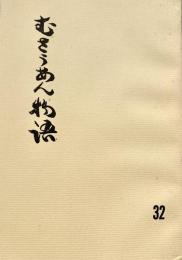 むさうあん物語
32